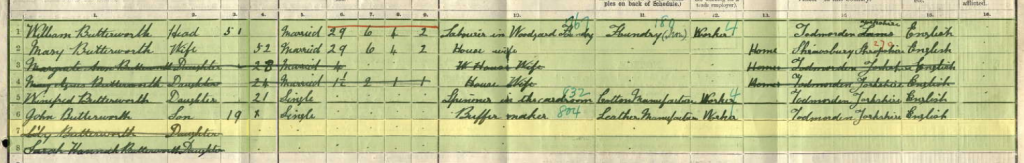 ples on back of Schedule.)
trade employer).
affected.
1. 2. 3. 4. 5. 6. 7. 8. 9. 10. 11. 12. 13. 14. 15. 16.
1 William Butterworth Head 51 Married 29 6 4 2 Labourer in Woodyard Foundry (Iron) Worker Todmorden Yorkshire English
2 Mary Butterworth Wife 52 Married 29 6 4 2 House wife Home Shrewsbury Shropshire English
3 Margaret Ann Butterworth Daughter 28 Married 4 House Wife Home Todmorden Yorkshire English
4 Mary Agnes Butterworth Daughter 24 Married 1½ 2 1 1 House Wife Home Todmorden Yorkshire English
5 Winifred Butterworth Daughter 21 Single 832 Cotton Manufacture Worker 4 Todmorden Yorkshire English
6 John Butterworth Son 19 x Single Buffer maker 804 Leather Manufacture Worker Todmorden Yorkshire English
7 Lily Butterworth Daughter
8 Sarah Hannah Butterworth Daughter